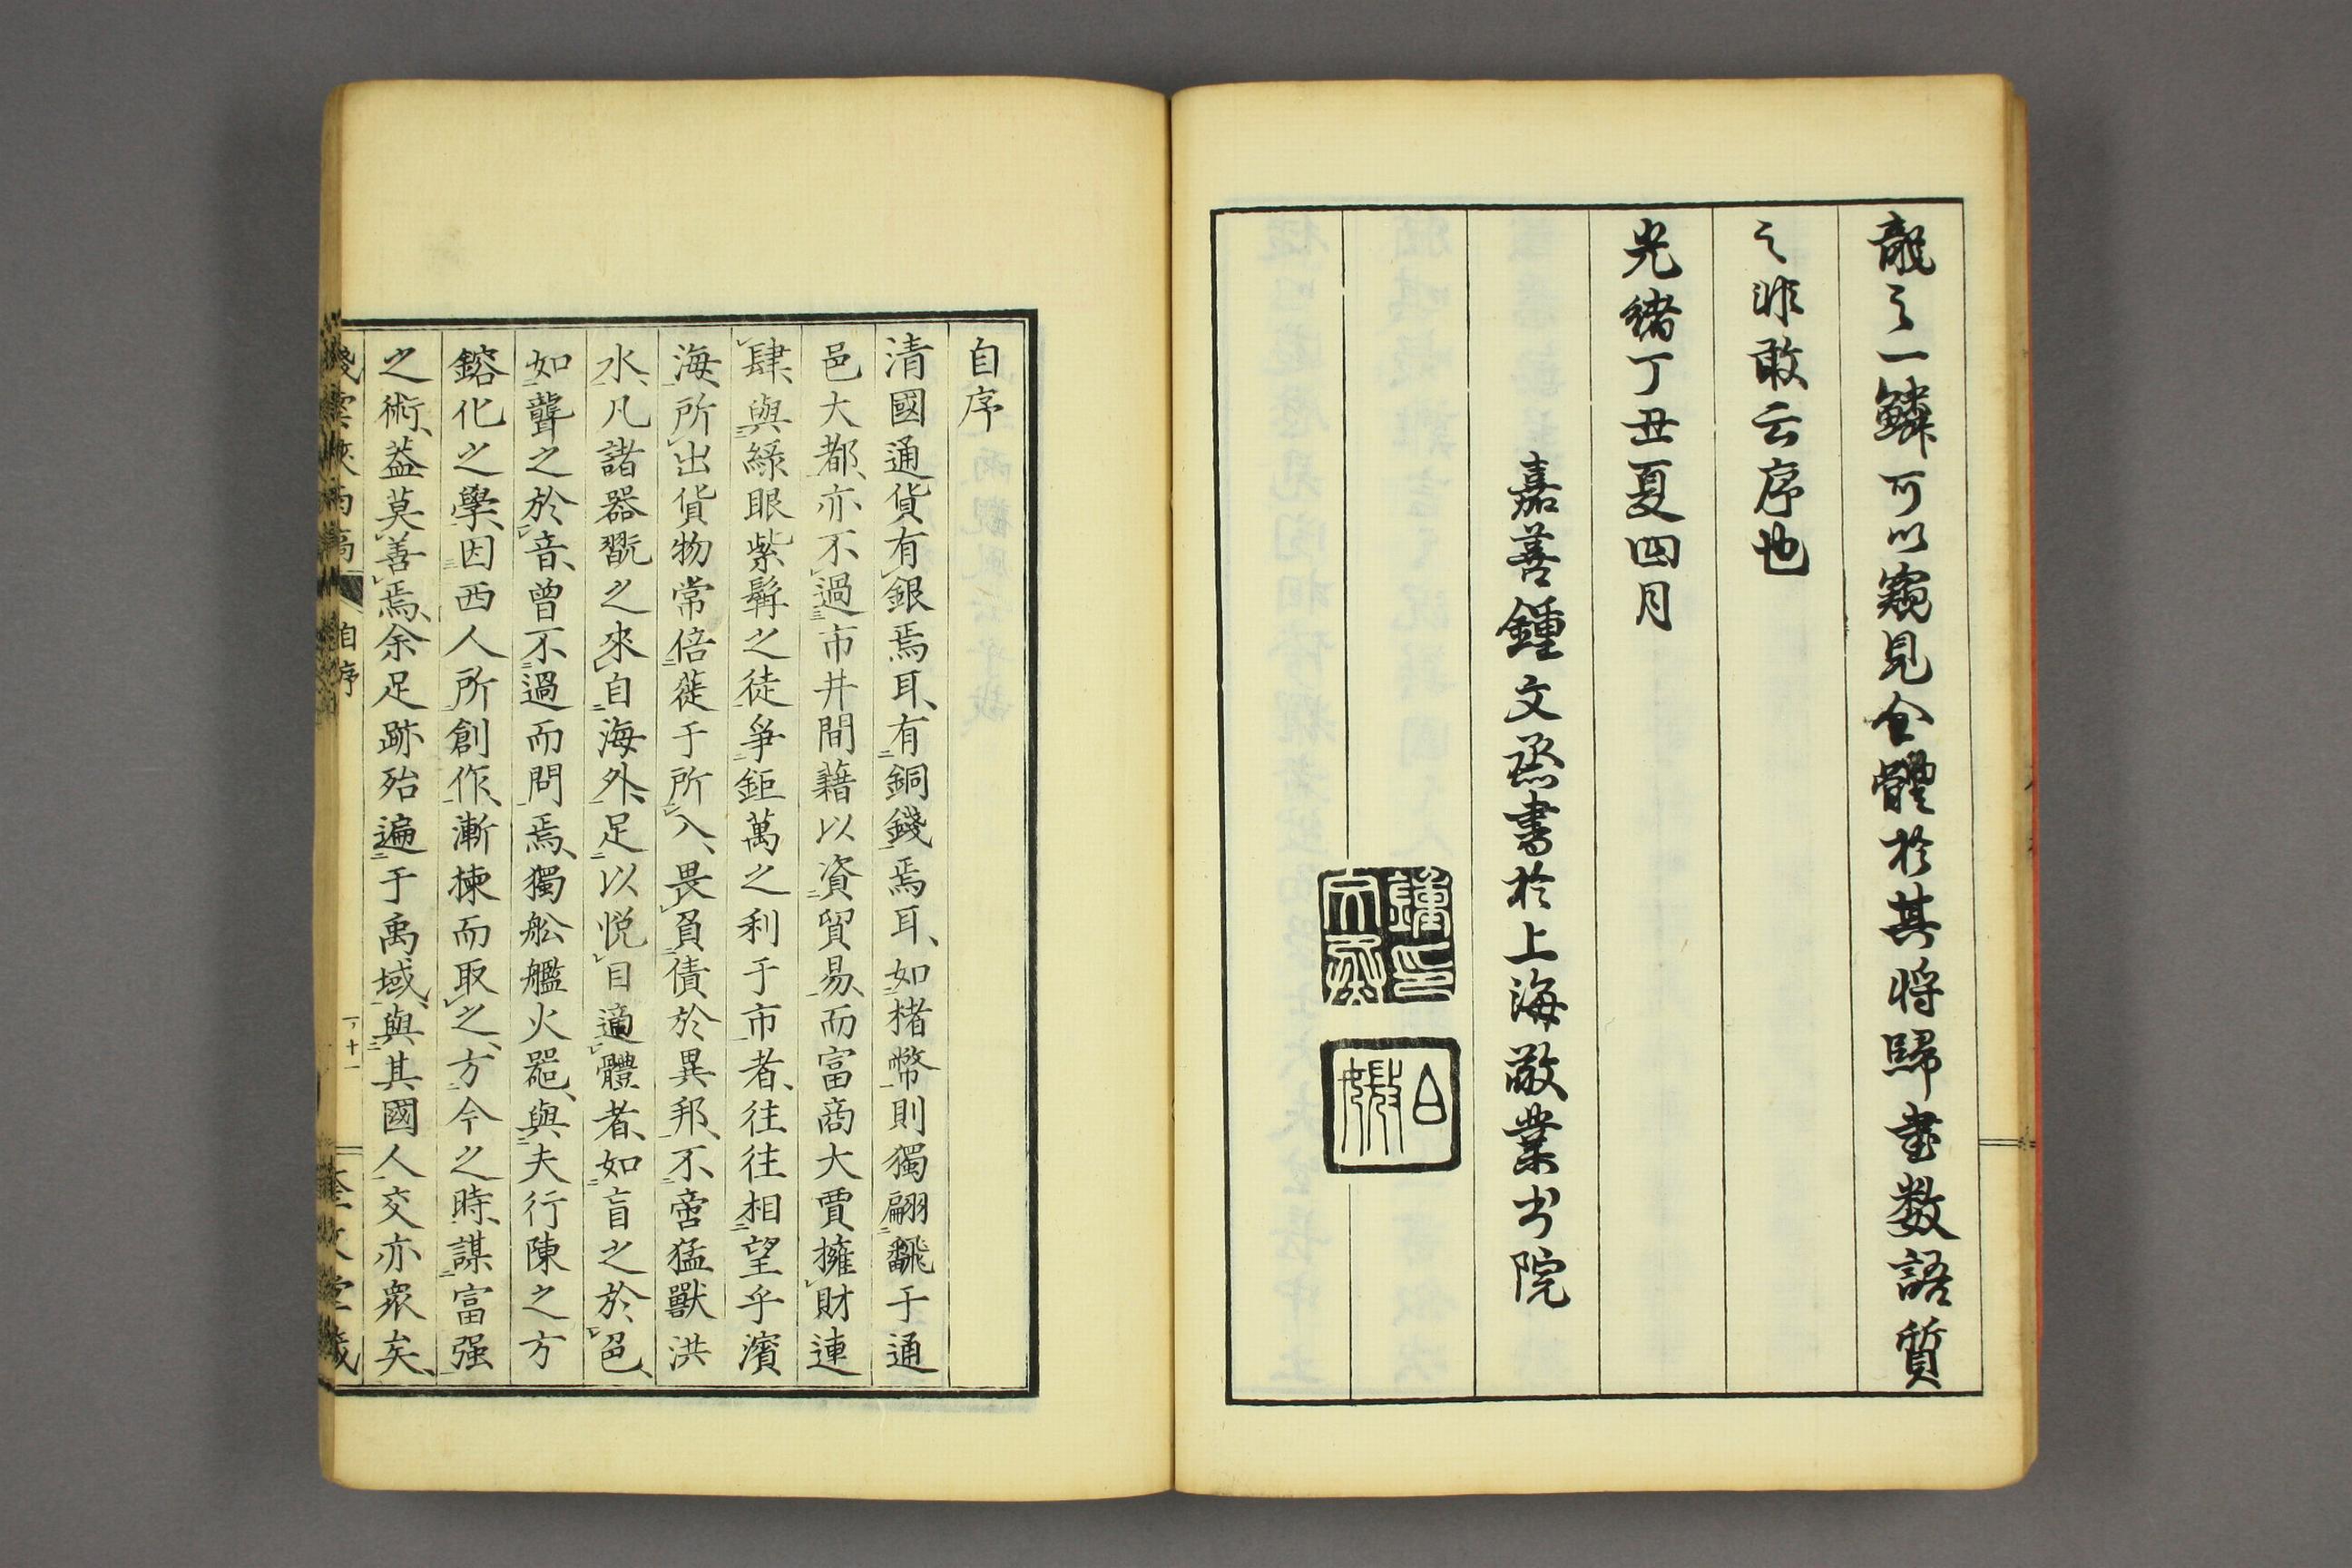 龍之一鱗可以窺見全體於其將歸書数語質
之非敢云序也
光緒丁丑夏四月
嘉善鍾文烝書於上海敬業书院
鍾印文烝
自序
清國通貨有銀焉耳、有銅錢焉耳、如楮幣則獨翩飜于通
邑大都、亦不過市井間藉以資貿易、而富商大賈擁財連
肆、與綠眼紫髯之徒爭鉅萬之利于市者、往往相望乎濱
海、所出貨物常倍蓰于所入、畏負債於異邦、不啻猛獸洪
水、凡諸器翫之來自海外、足以悦目適體者、如盲之於色、
如聾之於音、曾不過而問焉、獨舩艦火噐、與夫行陳之方
鎔化之學、因西人所創作、漸揀而取之、方今之時、謀富强
之術、葢莫善焉、余足跡殆遍于禹域、與其國人交亦衆矣、
棧雲峽雨稿 自序 十一 奎文堂藏